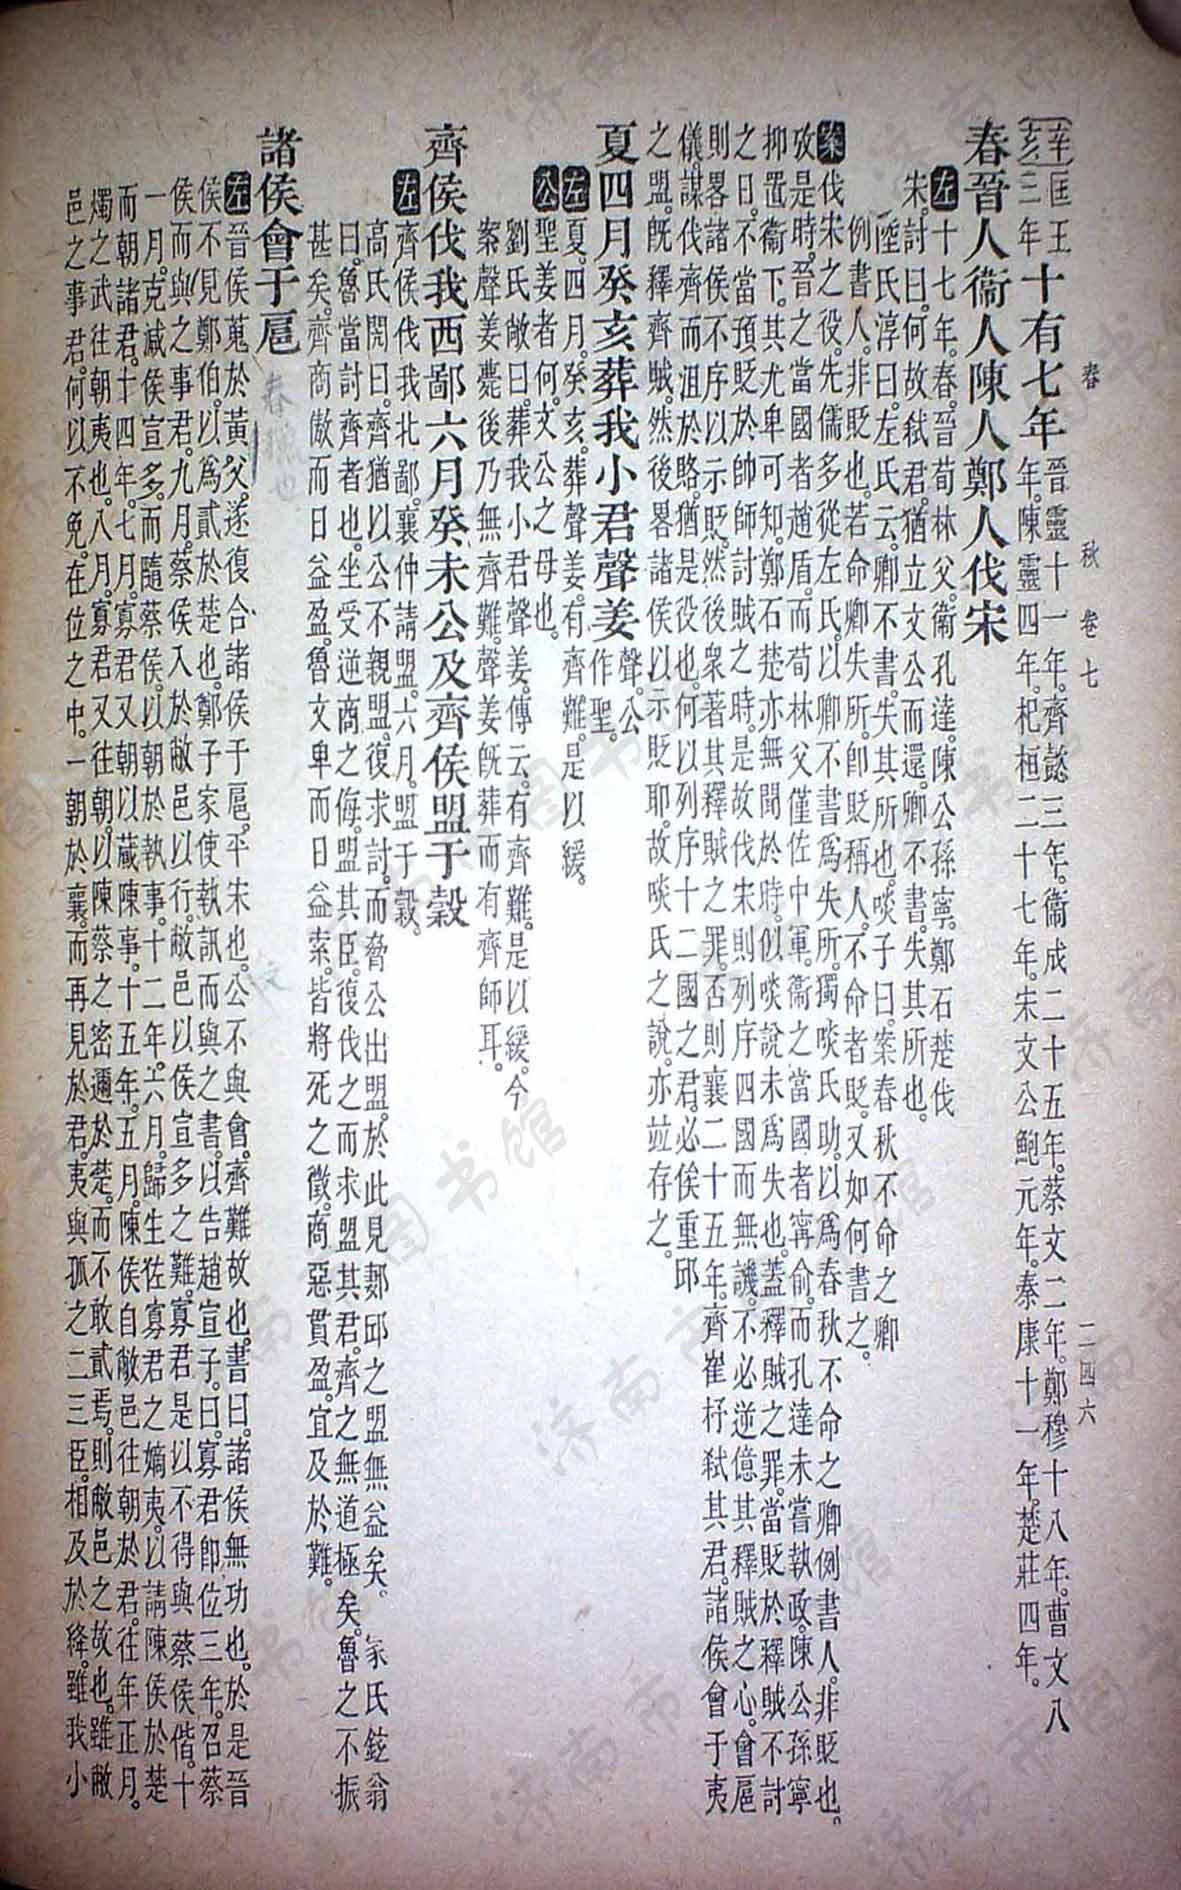 春　秋　卷七　二四六
辛亥 匡王三年 十有七年 晉靈十一年。齊懿三年。衞成二十五年。蔡文二年。鄭穆十八年。曹文八
年。陳靈四年。杞桓二十七年。宋文公鮑元年。秦康十一年。楚莊四年。
春晉人衞人陳人鄭人伐宋
左十七年。春。晉荀林父。衞孔達。陳公孫寧。鄭石楚伐
宋。討曰。何故弒君。猶立文公而還。卿不書。失其所也。
陸氏淳曰。左氏云。卿不書。失其所也。啖子曰。案春秋不命之卿
例書人。非貶也。若命卿失所。卽貶稱人。不命者貶。又如何書之。
案伐宋之役。先儒多從左氏。以卿不書爲失所。獨啖氏助。以爲春秋不命之卿例書人。非貶也。
攷是時。晉之當國者趙盾。而荀林父僅佐中軍。衞之當國者甯俞。而孔達未嘗執政。陳公孫寧
抑置衞下。其尤卑可知。鄭石楚亦無聞於時。似啖說未爲失也。蓋釋賊之罪。當貶於釋賊不討
之日。不當預貶於帥師討賊之時。是故伐宋則列序四國而無譏。不必逆億其釋賊之心。會扈
則畧諸侯不序以示貶。然後衆著其釋賊之罪。否則襄二十五年。齊崔杼弒其君。諸侯會于夷
儀。謀伐齊而沮於賂。猶是役也。何以列序十二國之君。必俟重邱
之盟。旣釋齊賊。然後畧諸侯以示貶耶。故啖氏之說。亦竝存之。
夏四月癸亥葬我小君聲姜 聲。公作聖。
左夏。四月。癸亥。葬聲姜。有齊難。是以緩。
公聖姜者何。文公之母也。
劉氏敞曰。葬我小君聲姜。傳云。有齊難。是以緩。今
案聲姜薨後乃無齊難。聲姜旣葬而有齊師耳。
齊侯伐我西鄙六月癸未公及齊侯盟于穀
左齊侯伐我北鄙。襄仲請盟。六月。盟于穀。
高氏閌曰。齊猶以公不親盟。復求討。而脅公出盟。於此見郪邱之盟無益矣。家氏鉉翁
曰。魯當討齊者也。坐受逆商之侮。盟其臣。復伐之而求盟其君。齊之無道極矣。魯之不振
甚矣。齊商傲而日益盈。魯文卑而日益索。皆將死之徵。商惡貫盈。宜及於難。
諸侯會于扈
左晉侯蒐於黃父。遂復合諸侯于扈。平宋也。公不與會。齊難故也。書曰。諸侯無功也。於是晉
侯不見鄭伯。以爲貳於楚也。鄭子家使執訊而與之書。以告趙宣子。曰。寡君卽位三年。召蔡
侯而與之事君。九月。蔡侯入於敝邑以行。敝邑以侯宣多之難。寡君是以不得與蔡侯偕。十
一月。克減侯宣多。而隨蔡侯。以朝於執事。十二年。六月。歸生佐寡君之嫡夷。以請陳侯於楚
而朝諸君。十四年。七月。寡君又朝以蕆陳事。十五年。五月。陳侯自敝邑往朝於君。往年正月。
燭之武往朝夷也。八月。寡君又往朝。以陳蔡之密邇於楚。而不敢貳焉。則敝邑之故也。雖敝
邑之事君。何以不免。在位之中。一朝於襄。而再見於君。夷與孤之二三臣。相及於絳。雖我小